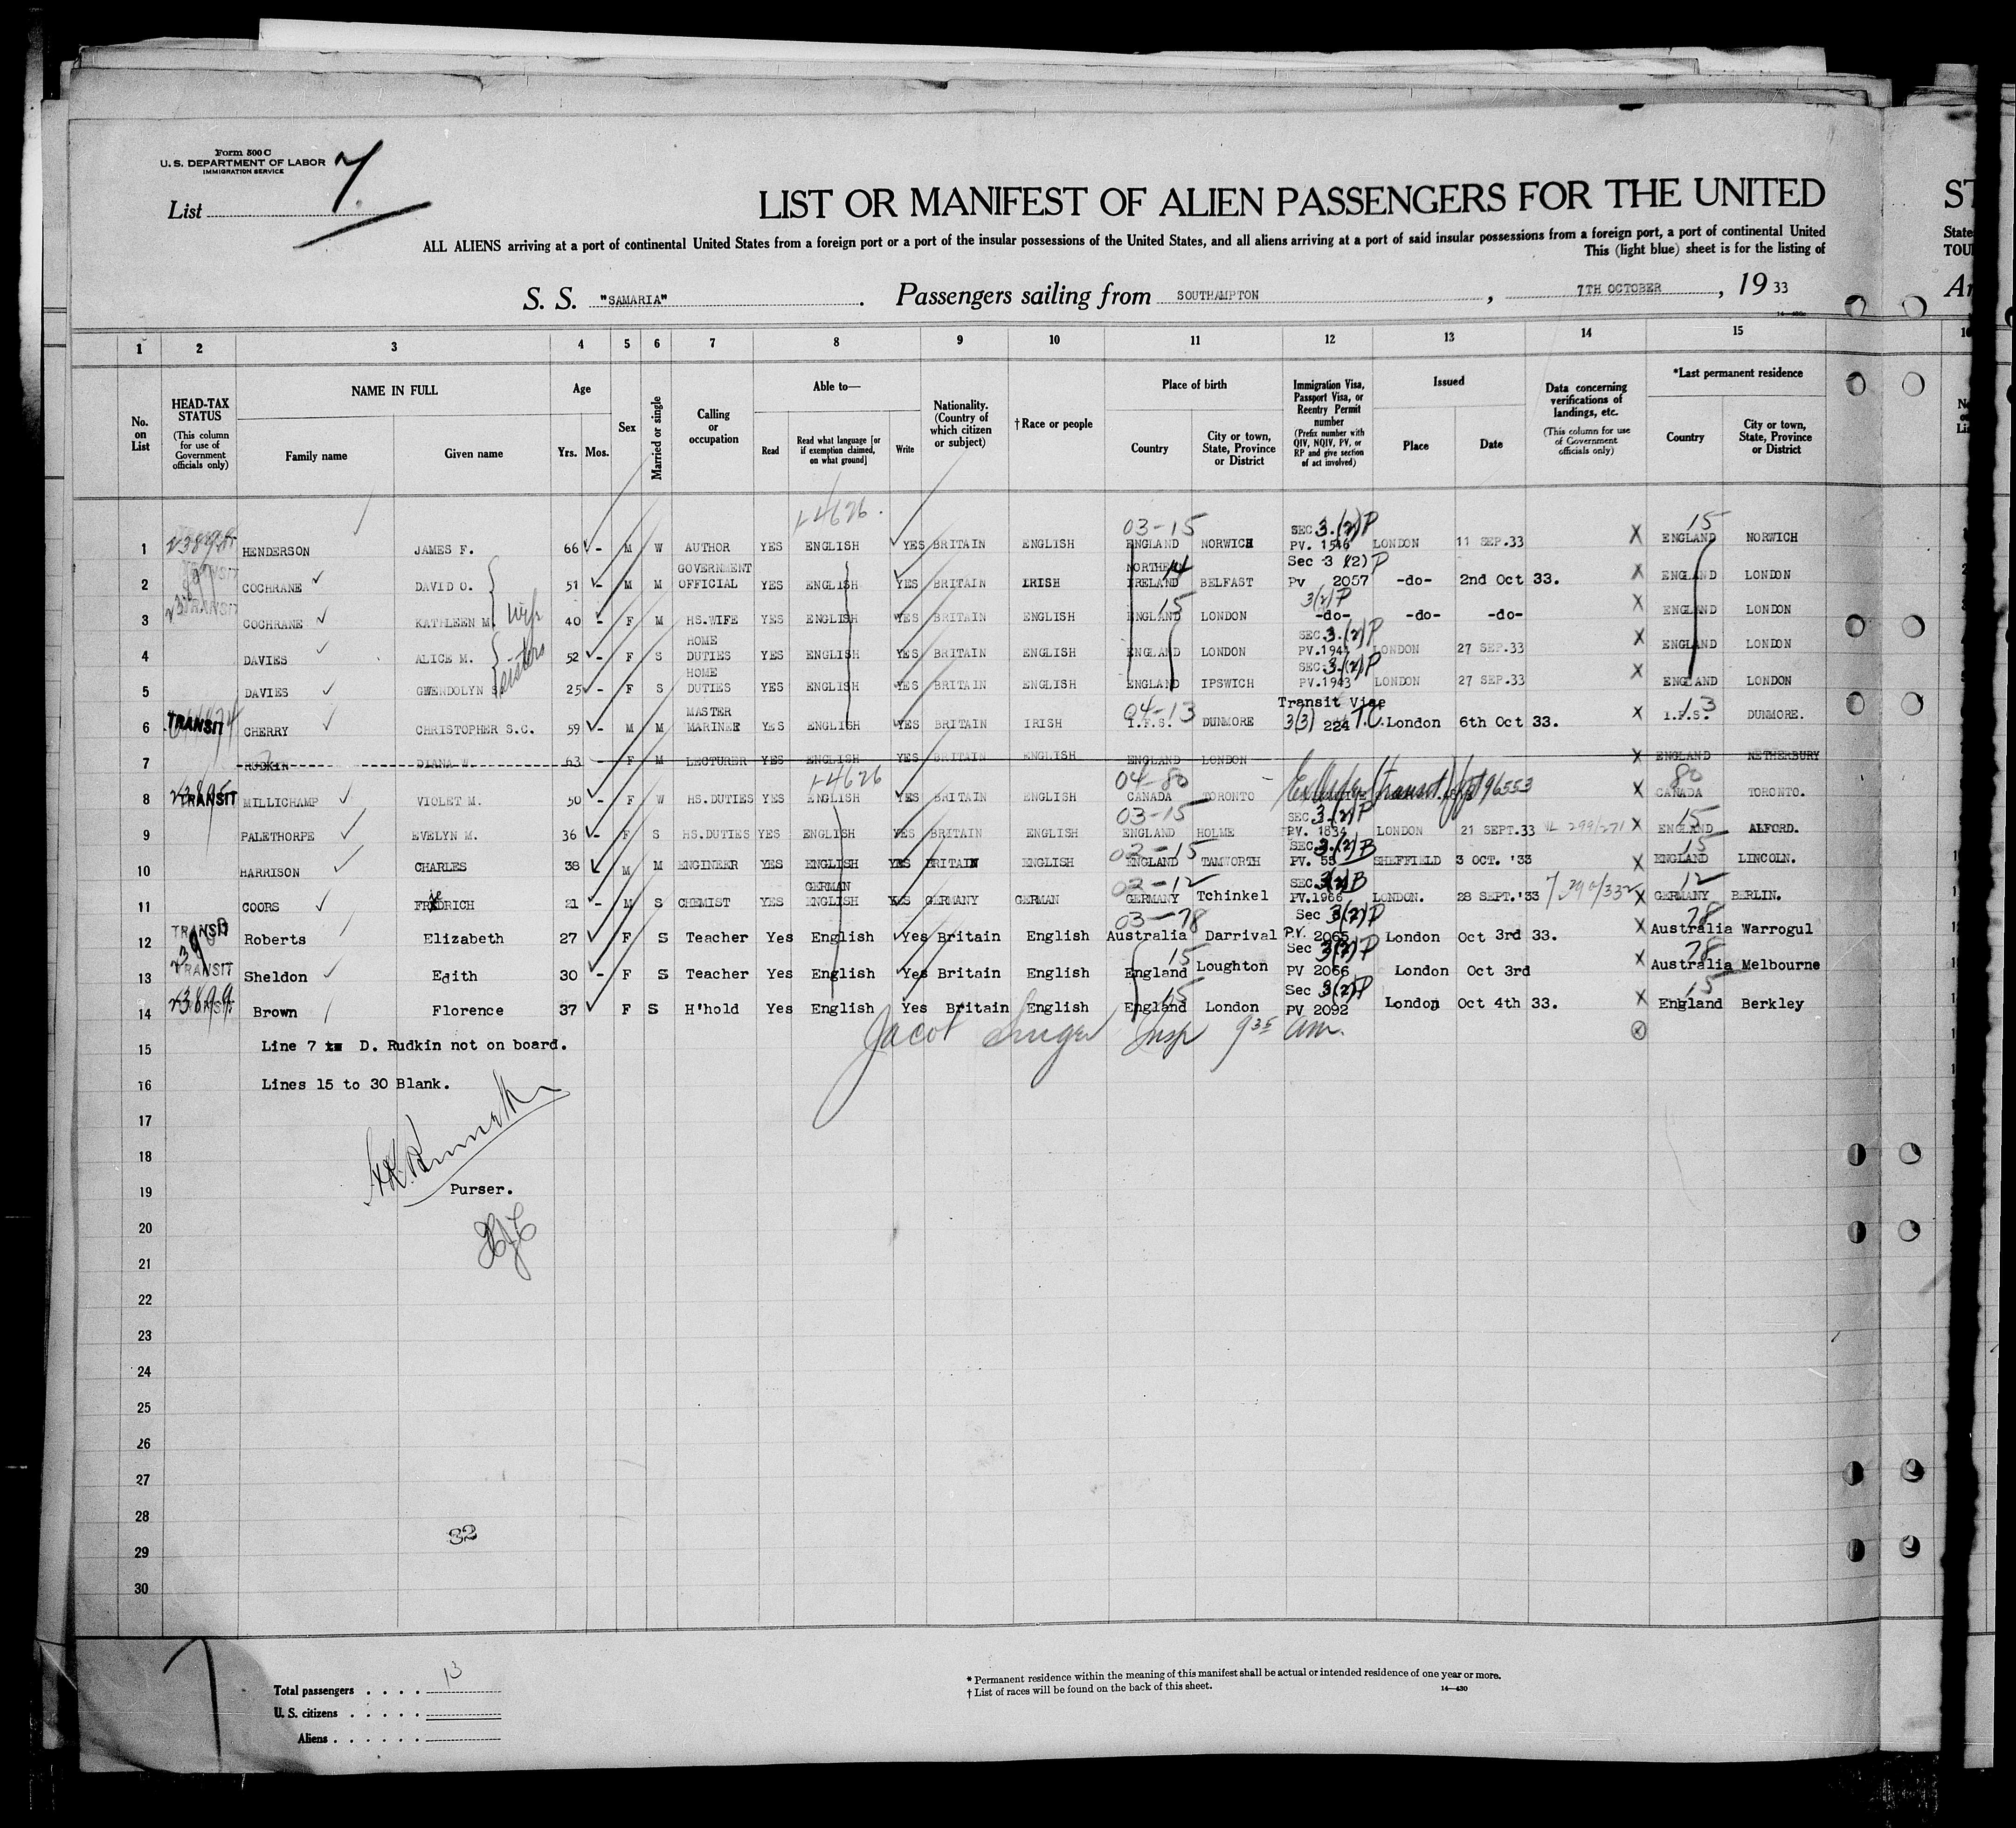 Form 500 C
U. S. DEPARTMENT OF LABOR
IMMIGRATION SERVICE
List 7
LIST OR MANIFEST OF ALIEN PASSENGERS FOR THE UNITED
ST
ALL ALIENS arriving at a port of continental United States from a foreign port or a port of the insular possessions of the United States, and all aliens arriving at a port of said insular possessions from a foreign port, a port of continental United
State
This (light blue) sheet is for the listing of
TOU
S. S. "SAMARIA". Passengers sailing from SOUTHAMPTON, 7TH OCTOBER, 19 33
1 2 3 4 5 6 7 8 9 10 11 12 13 14 15
No. on List
HEAD-TAX STATUS
(This column for use of Government officials only)
NAME IN FULL
Family name
Given name
Age
Yrs. Mos.
Sex
Married or single
Calling or occupation
Able to—
Read
Read what language [or if exemption claimed, on what ground]
Write
Nationality. (Country of which citizen or subject)
†Race or people
Place of birth
Country
City or town, State, Province or District
Immigration Visa, Passport Visa, or Reentry Permit number
(Prefix number with QIV, NQIV, PV, or RP and give section of act involved)
Issued
Place
Date
Data concerning verifications of landings, etc.
(This column for use of Government officials only)
*Last permanent residence
Country
City or town, State, Province or District
1-4626. 03-15 SEC 3.(2)P 15
1 HENDERSON JAMES F. 66 - M W AUTHOR YES ENGLISH YES BRITAIN ENGLISH ENGLAND NORWICH PV. 1546 LONDON 11 SEP.33 X ENGLAND NORWICH
TRANSIT GOVERNMENT NORTHERN 14 Sec 3 (2) P
2 COCHRANE DAVID O. 51 - M M OFFICIAL YES ENGLISH YES BRITAIN IRISH IRELAND BELFAST Pv 2057 -do- 2nd Oct 33. X ENGLAND LONDON
TRANSIT wife 15 3(2)P
3 COCHRANE KATHLEEN M. 40 - F M HS.WIFE YES ENGLISH YES BRITAIN ENGLISH ENGLAND LONDON -do- -do- -do- X ENGLAND LONDON
HOME SEC.3.(2)P
4 DAVIES ALICE M. 52 - F S DUTIES YES ENGLISH YES BRITAIN ENGLISH ENGLAND LONDON PV.1944 LONDON 27 SEP.33 X ENGLAND LONDON
sisters HOME SEC.3.(2)P
5 DAVIES GWENDOLYN S. 25 - F S DUTIES YES ENGLISH YES BRITAIN ENGLISH ENGLAND IPSWICH PV.1943 LONDON 27 SEP.33 X ENGLAND LONDON
TRANSIT MASTER 04-13 Transit Visa 13
6 CHERRY CHRISTOPHER S.C. 59 - M M MARINER YES ENGLISH YES BRITAIN IRISH I.F.S. DUNMORE 3(3) 224 T.C. London 6th Oct 33. X I.F.S. DUNMORE.
7 RUDKIN DIANA W. 63 - F M LECTURER YES ENGLISH YES BRITAIN ENGLISH ENGLAND LONDON X ENGLAND NETHERBURY
TRANSIT 1-4626 04-80 80
8 MILLICHAMP VIOLET M. 50 - F W HS.DUTIES YES ENGLISH YES BRITAIN ENGLISH CANADA TORONTO X CANADA TORONTO.
03-15 SEC 3.(2)P 15
9 PALETHORPE EVELYN M. 36 - F S HS.DUTIES YES ENGLISH YES BRITAIN ENGLISH ENGLAND HOLME PV. 1834 LONDON 21 SEPT.33 299/271 X ENGLAND ALFORD.
02-15 SEC.3.(2)B 15
10 HARRISON CHARLES 38 M M ENGINEER YES ENGLISH YES BRITAIN ENGLISH ENGLAND TAMWORTH PV. 55 SHEFFIELD 3 OCT. '33 X ENGLAND LINCOLN.
GERMAN 02-12 SEC.3(2)B 12
11 COORS FRIEDRICH 21 - M S CHEMIST YES ENGLISH YES GERMANY GERMAN GERMANY Tchinkel PV.1966 LONDON. 28 SEPT.'33 X GERMANY BERLIN.
TRANSIT 03-78 Sec 3(2)P 78
12 Roberts Elizabeth 27 F S Teacher Yes English Yes Britain English Australia Darrival P.V. 2065 London Oct 3rd 33. X Australia Warrogul
TRANSIT 15 Sec 3(2)P 78
13 Sheldon Edith 30 - F S Teacher Yes English Yes Britain English England Loughton PV 2066 London Oct 3rd X Australia Melbourne
15 Sec 3(2)P 15
14 Brown Florence 37 F S H'hold Yes English Yes Britain English England London PV 2092 London Oct 4th 33. X England Berkley
Insp 9 35 am.
15 Line 7 D. Rudkin not on board.
16 Lines 15 to 30 Blank.
17
18
19 Purser.
20
21
22
23
24
25
26
27
28
32
29
30
Total passengers . . . . 13
U. S. citizens . . . . .
Aliens . . . . . .
* Permanent residence within the meaning of this manifest shall be actual or intended residence of one year or more.
† List of races will be found on the back of this sheet. 14—430